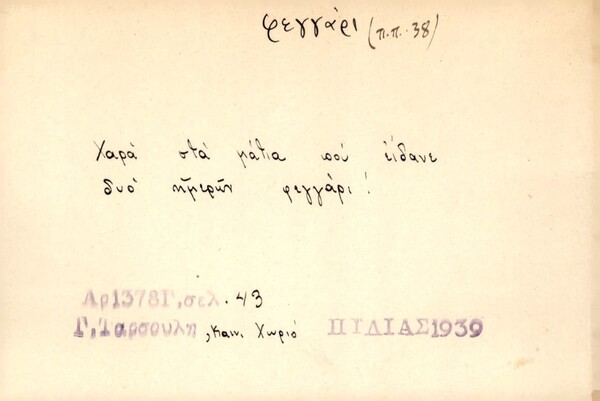 φεγγάρι (π.π. 38)
Χαρά στά μάτια πού είδανε
δυό ημερών φεγγάρι!
Αρ1378Γ, σελ. 43
Γ. Ταρσουλη, Καιν. Χωριό ΠΙΔΙΑΣ1939